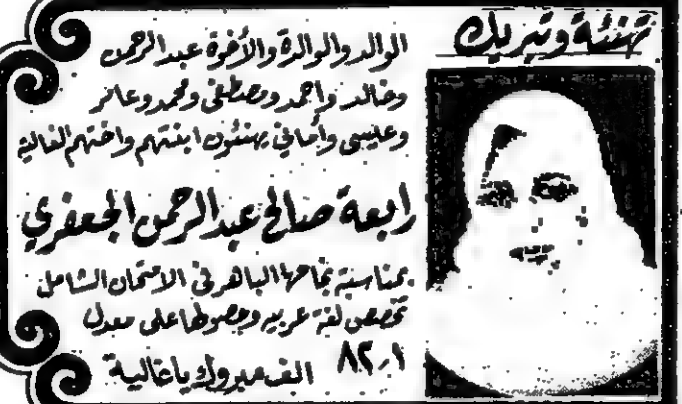 تهنئة وتبريك
الوالد والوالدة والأخوة عبدالرحمن
وخالد واحمد ومصطفى ومحمد وعامر
وعيسى وأماني يهنئون ابنتهم واختهم الغالية
رابعة صالح عبدالرحمن الجعفري
بمناسبة نجاحها الباهر في الامتحان الشامل
تخصص لغة عربيه وحصولها على معدل
٨٢٫١ الف مبروك يا غالية